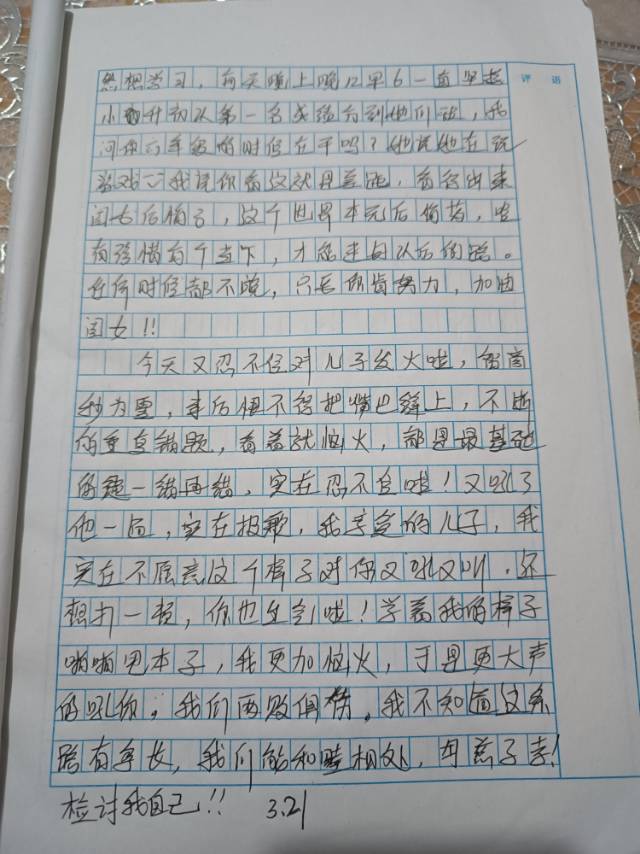 然想学习，每天晚上晚12早6一直坚持 评语
小升初以第一名成绩考到他们班，我
问你六年级的时候在干吗？他说他在玩
游戏♡我说你看这就是差距，看得出来
闺女后悔了，这个世界本无后悔药，唯
有珍惜每个当下，才能走自以后的路。
任何时候都不晚，只要你肯努力，加油
闺女!!
今天又忍不住对儿子发火啦，智商
秒为零，事后恨不得把嘴巴缝上，不断
的重复错题，看着就恼火，都是最基础
的题一错再错，实在忍不住啦！又吼了
他一通，实在抱歉，我亲爱的儿子，我
实在不愿意这个样子对你又吼又叫，还
想打一顿，你也生气啦！学着我的样子
啪啪甩本子，我更加恼火，于是更大声
的吼你，我们两败俱伤。我不知道这条
路有多长，我们能和睦相处，母慈子孝！
检讨我自己!! 3.21